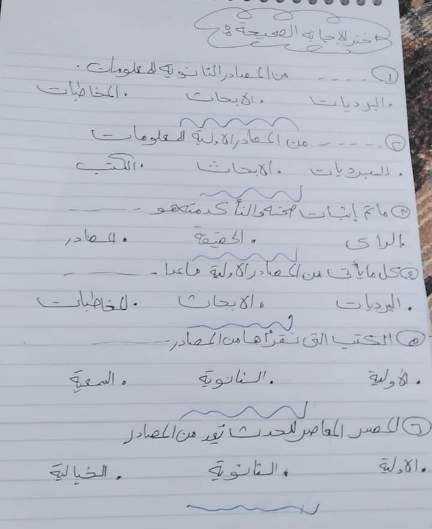 اختر الاجابه الصحيحة :
① ---- من المصادر الثانوية للمعلومات .
. البرديات . الابحاث . المخاطبات
② ---- من المصادر الاولية للمعلومات
. البرديات . الابحاث . الكتب
③ ماتم إثبات صحته بالتأكيد هو ----
. الرأى . الحقيقة . المصادر
④ كل مايأتى من المصادر الاولية ماعدا ----
. البرديات . الابحاث . المخاطبات
⑤ الكتب التى نقرأها من المصادر ----
. الاولية . الثانوية . السمعية
⑥ المصدر المعاصر للحدث يعد من المصادر
. الاولية . الثانوية . الخيالية